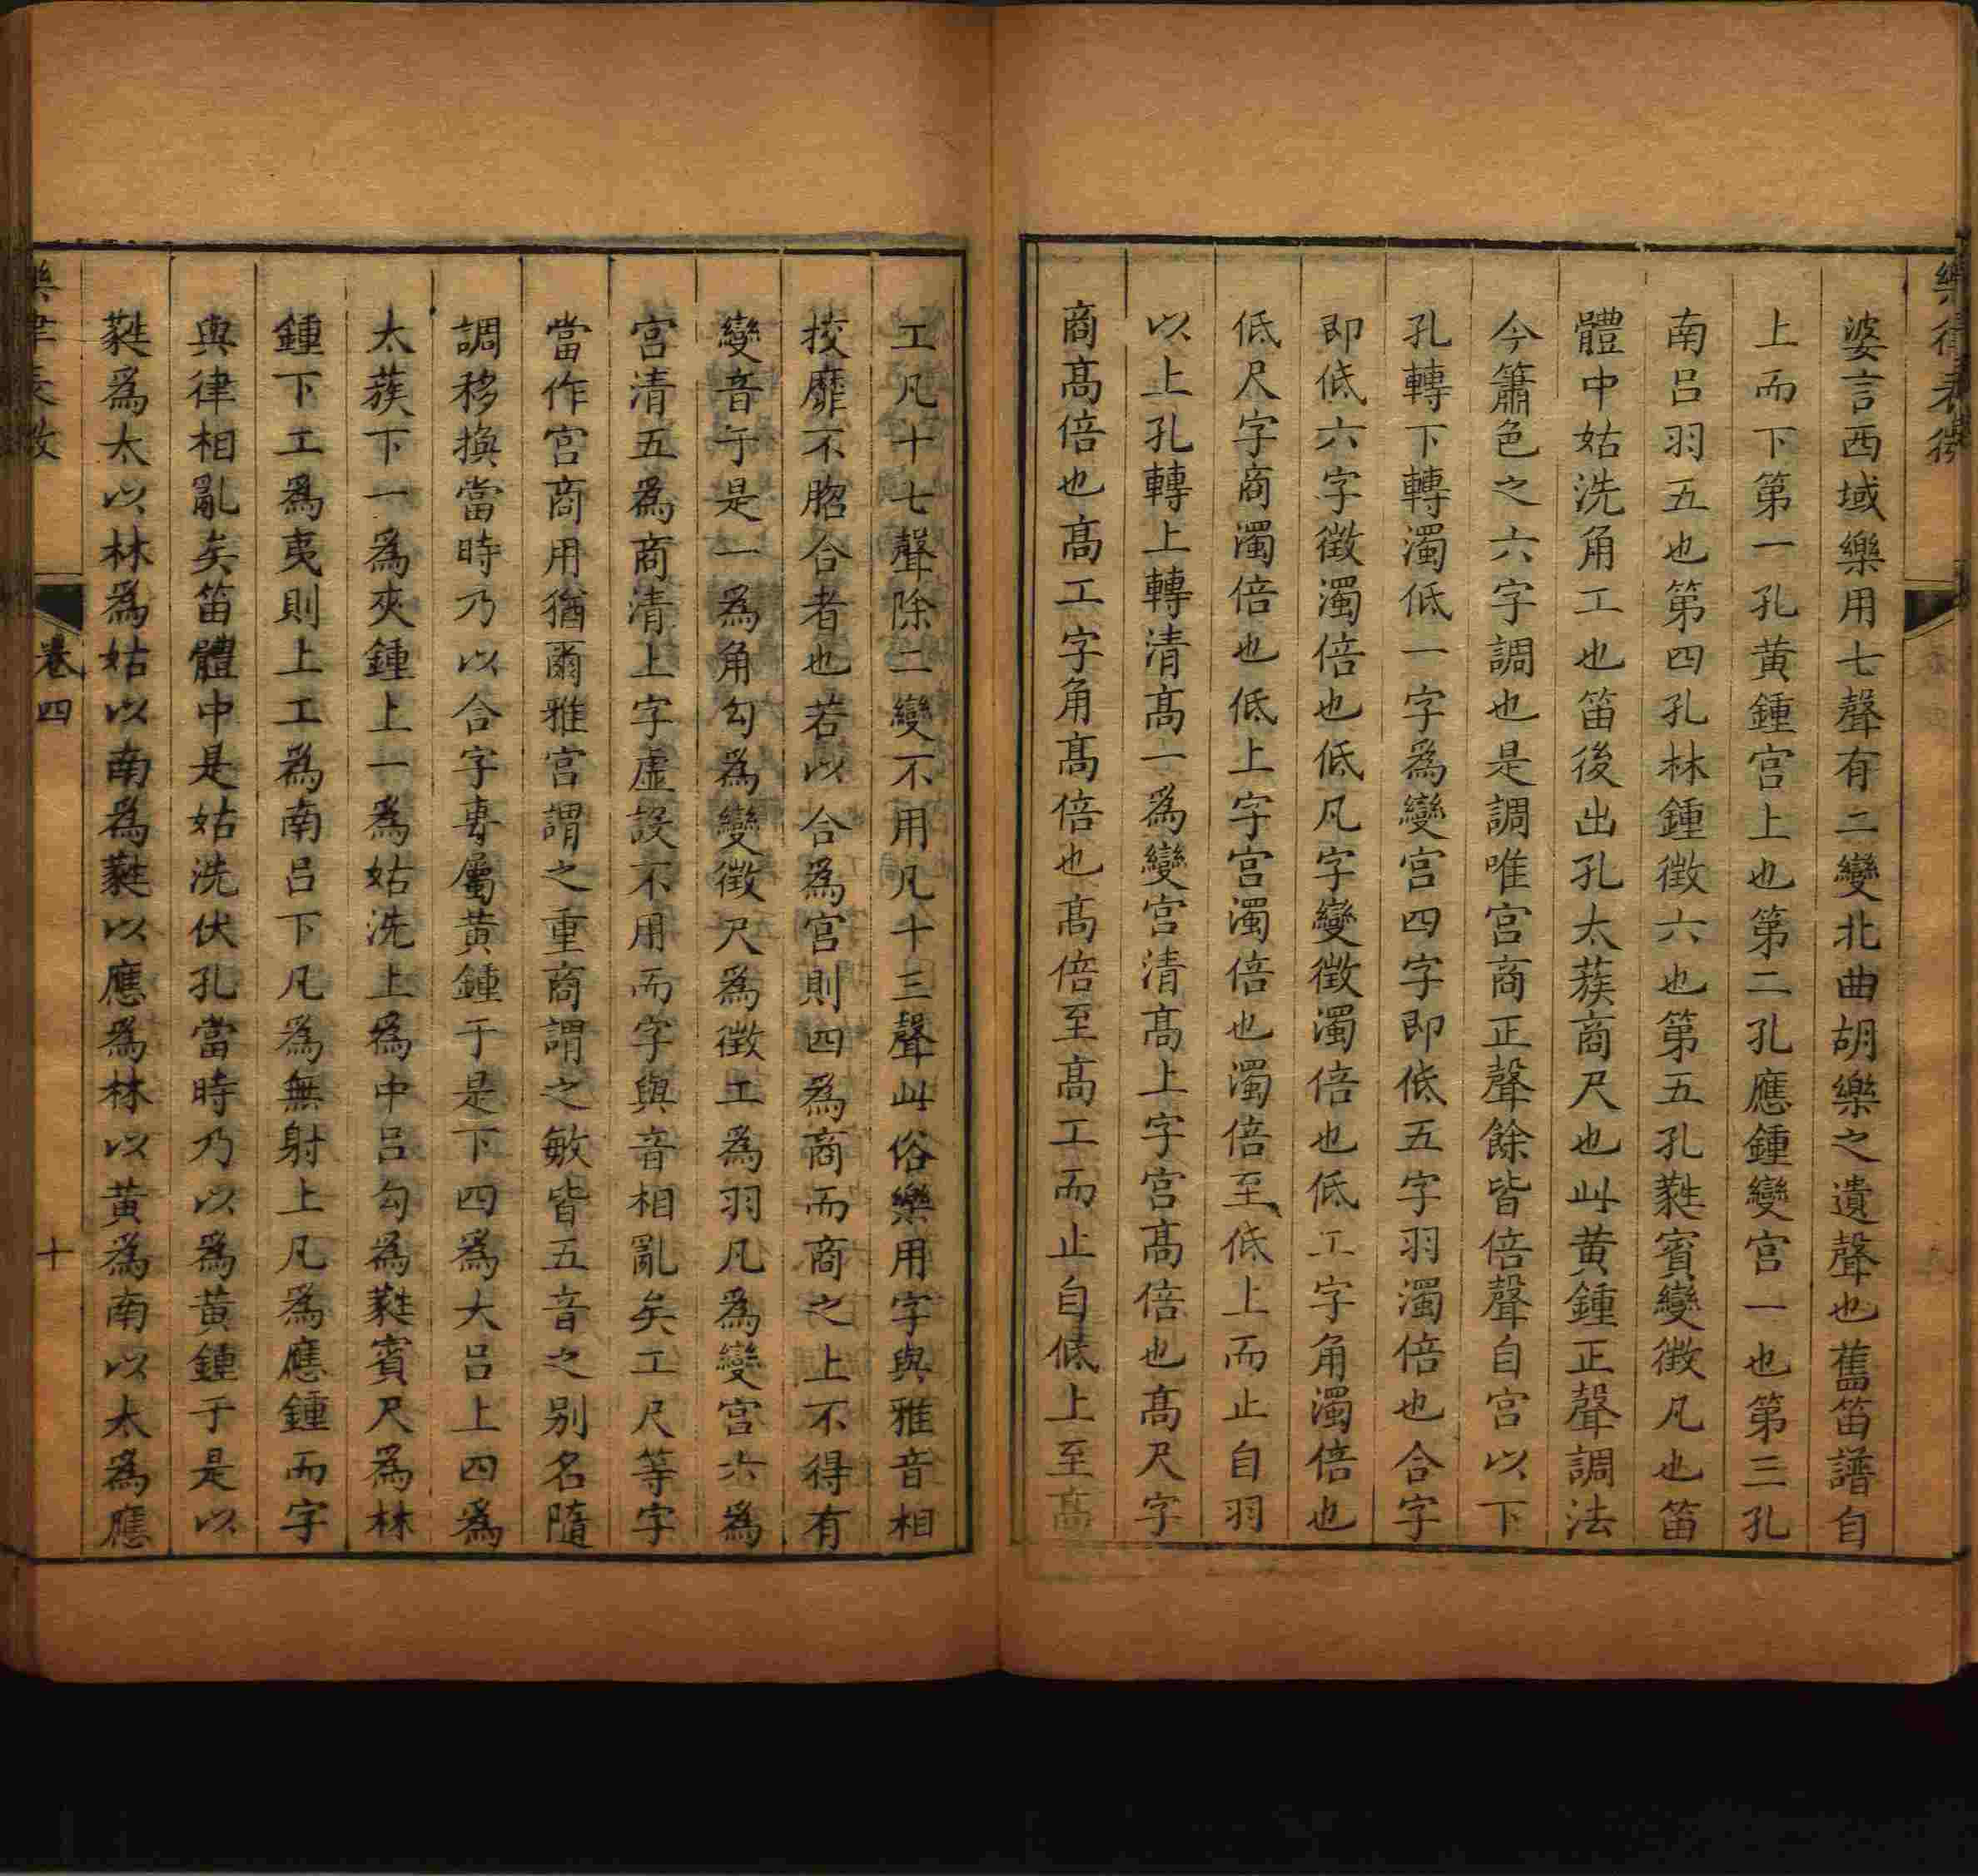 婆言西域樂用七聲有二變北曲胡樂之遺聲也舊笛譜自
上而下第一孔黃鍾宮上也第二孔應鍾變宮一也第三孔
南呂羽五也第四孔林鍾徵六也第五孔蕤賓變徵凡也笛
體中姑洗角工也笛後出孔太蔟商尺也此黃鍾正聲調法
今簫色之六字調也是調唯宮商正聲餘皆倍聲自宮以下
孔轉下轉濁低一字為變宮四字即低五字羽濁倍也合字
即低六字徵濁倍也低凡字變徵濁倍也低工字角濁倍也
低尺字商濁倍也低上字宮濁倍也濁倍至低上而止自羽
以上孔轉上轉清高一為變宮清高上字宮高倍也高尺字
商高倍也高工字角高倍也高倍至高工而止自低上至高
工凡十七聲除二變不用凡十三聲此俗樂用字與雅音相
挍靡不脗合者也若以合為宮則四為商而商之上不得有
變音于是一為角勾為變徵尺為徵工為羽凡為變宮六為
宮清五為商清上字虛設不用而字與音相亂矣工尺等字
當作宮商用猶爾雅宮謂之重商謂之敏皆五音之別名隨
調移換當時乃以合字專屬黃鍾于是下四為大呂上四為
太蔟下一為夾鍾上一為姑洗上為中呂勾為蕤賓尺為林
鍾下工為夷則上工為南呂下凡為無射上凡為應鍾而字
與律相亂矣笛體中是姑洗伏孔當時乃以為黃鍾于是以
蕤為太以林為姑以南為蕤以應為林以黃為南以太為應
卷四
十